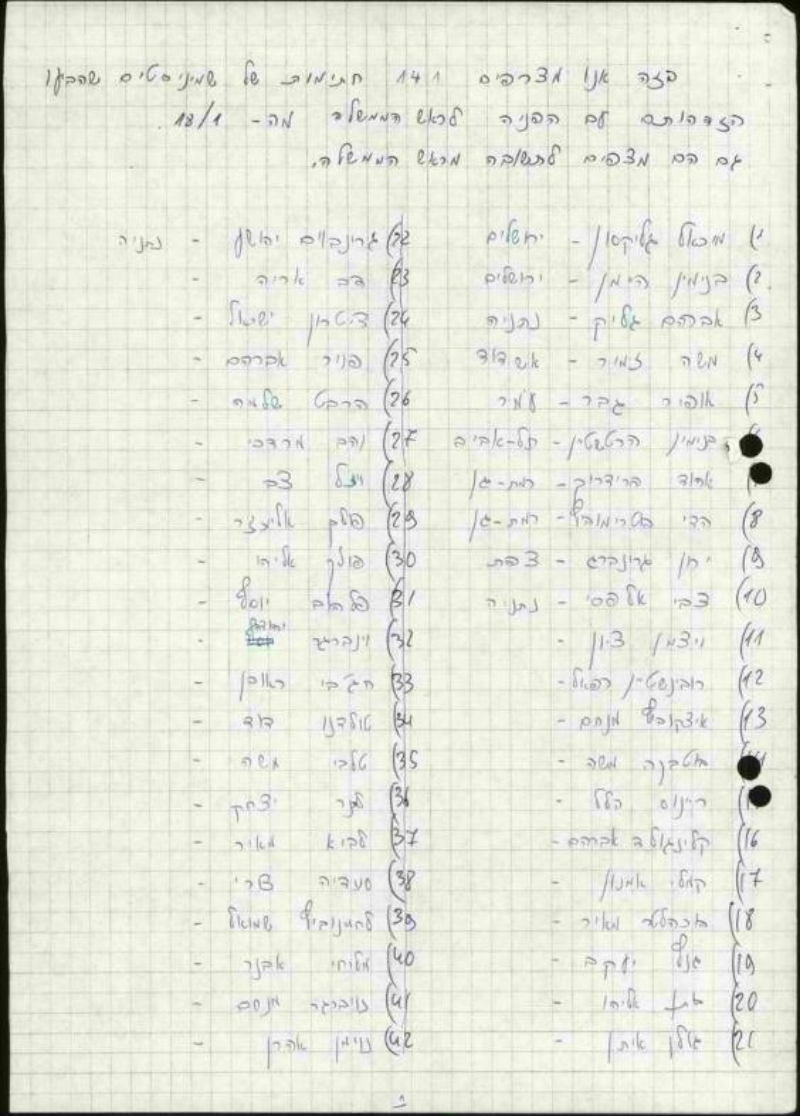 בזה אנו מצרפים 141 חתימות של שמיניסטים שהביעו
הזדהותם עם הפניה לראש הממשלה מה- 18/1.
גם הם מצפים לתשובה מראש הממשלה.
1) מיכאל גליקסון - ירושלים
2) בנימין היימן - ירושלים
3) אברהם גליק - נתניה
4) משה זמיר - אשדוד
5) אופיר גבר - עומר
בנימין הרטשטין - תל-אביב
אהוד פרידריך - רמת-גן
8) הדי - רמת-גן
9) ירון גרונברג - צפת
10) צבי אלפסי - נתניה
11) ויצמן ציון -
12) רובינשטיין רפאל -
13) איצקוביץ מנחם -
משה -
ריינוס הלל -
16) קלינגולד אברהם -
17) אמנון -
18) מאיר -
19) גנץ יעקב -
20) אליהו -
21) גולן איתן -
22) גרינבוים יהושע - נתניה
23) דב אריה -
24) ציטרון ישראל -
25) פניר אברהם -
26) הרבט שלמה -
27) והב מרדכי -
28) ויזל צבי -
29) פולק אליעזר -
30) פולק אליהו -
31) יוסף -
32) וינברגר יהודה -
33) חג'בי ראובן -
34) טולדנו דוד -
35) טלבי משה -
36) לנר יצחק -
37) לביא מאיר -
38) סעדיה צורי -
39) שמואל -
40) מליחי אבנר -
41) נויברגר מנחם -
42) נוימן אהרן -
1